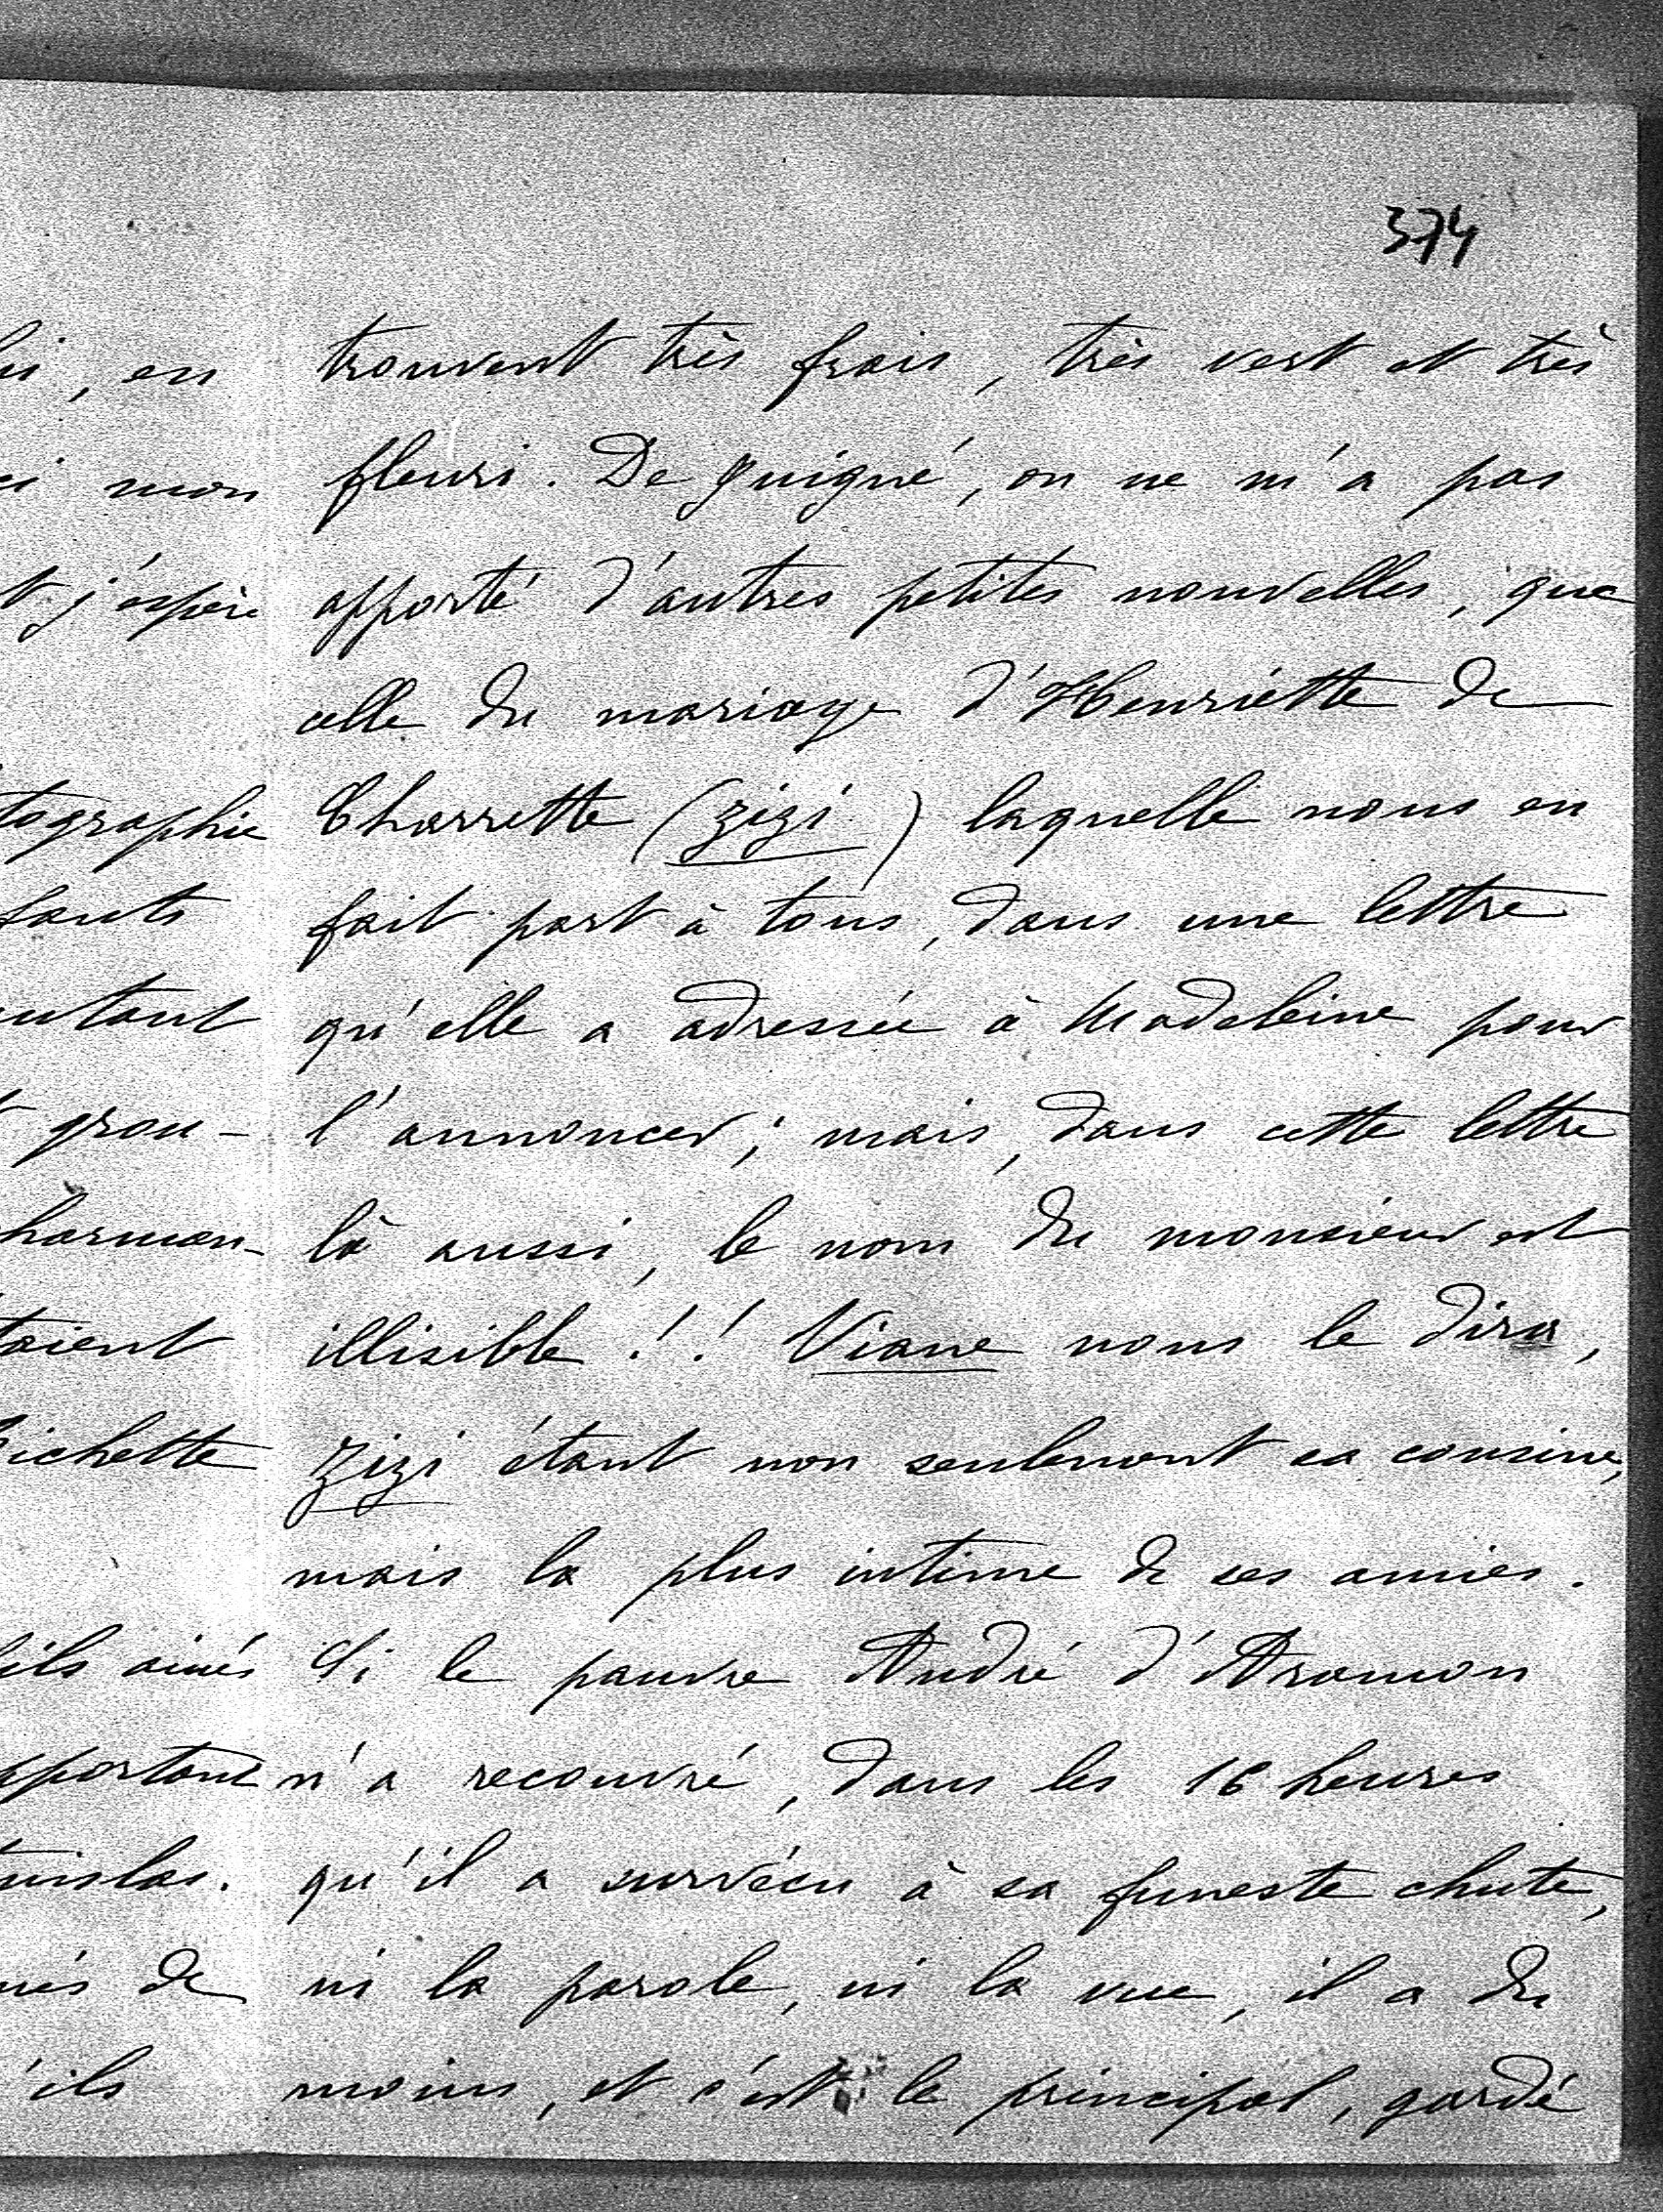 374
trouvent très frais, très vert et très
fleuri. De Guigné, on ne m'a pas
apporté d'autres petites nouvelles, que
celle du mariage d'Henriette de
Charrette (Zizi) laquelle nous en
fait part à tous, dans une lettre
qu'elle a adressée à Madeleine pour
l'annoncer; mais, dans cette lettre
là aussi, le nom du monsieur est
illisible!! Viane nous le dira,
Zizi étant non seulement sa cousine,
mais la plus intime de ses amies.
Si le pauvre André d'Aramon
n'a recouvré, dans les 16 heures
qu'il a survécu à sa funeste chute,
ni la parole, ni la vue, il a du
moins, et c'est le principal, gardé
en
mon
j'espère
tographie
fants
utant
grou-
harman-
taient
ichette
fils ainés
pportant
nislas.
nés de
'ils